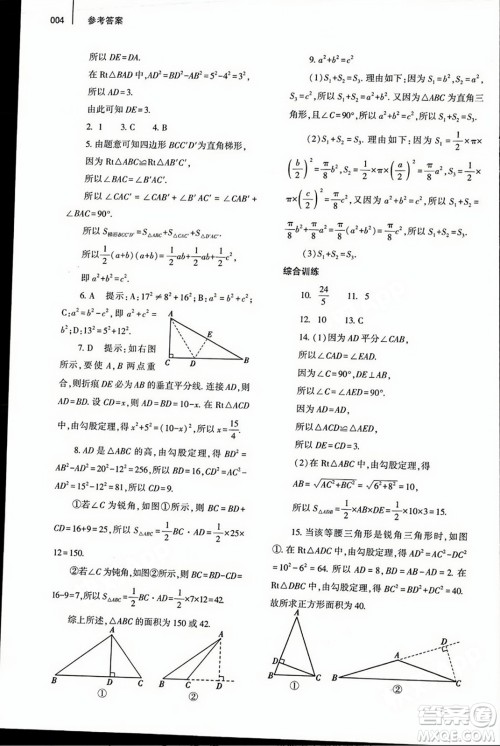 004 参考答案
所以 DE=DA.
在 Rt△BAD 中,AD²=BD²-AB²=5²-4²=3²,
所以 AD=3.
由此可知 DE=3.
2. 1  3. C  4. B
5. 由题意可知四边形 BCC′D′为直角梯形,
因为 Rt△ABC≌Rt△AB′C′,
所以∠BAC=∠B′AC′.
所以∠CAC′=∠CAB′+∠B′AC′=∠CAB′+
∠BAC=90°.
所以 S梯形BCC′D′=S△ABC+S△CAC′+S△D′AC′.
所以 1/2(a+b)(a+b)=1/2ab+1/2c²+1/2ab,
即 a²+b²=c².
6. A 提示:17²≠8²+16²,B、C、D
为:5²+12²=13²,a²+b²=c²,
D:13²=5²+12².
7. D 提示:如右图
所示,要使 A,B 两点重
合,则折痕 DE 必为 AB 的垂直平分线.连接 AD,则
AD=BD.设 CD=x,则 AD=BD=10-x.在 Rt△ACD
中,由勾股定理,得 x²+5²=(10-x)²,所以 x=15/4.
8. AD 是△ABC 的高,由勾股定理,得 BD²=
AB²-AD²=15²-12²=81,所以 BD=9,CD²=AC²-
AD²=20²-12²=16²,所以 CD=16.
①若∠C 为锐角,如图①所示,此时 BC=BD+
CD=9+16=25,S△ABC=1/2BC·AD=1/2×25×
12=150.
②若∠C 为钝角,如图②所示,此时 BC=CD-BD=
16-9=7,所以 S△ABC=1/2BC·AD=1/2×7×12=42.
综上所述,△ABC 的面积为 150 或 42.
A
E
C D B
A
B D C
①
A
B C D
②
9. a²+b²=c²
(1)S₁+S₂=S₃.理由如下:因为 S₁=b²,S₂=a²,
S₃=c²,所以 S₁+S₂=a²+b².又因为△ABC 为直角三
角形,且∠C=90°,所以 a²+b²=c²,所以 S₁+S₂=S₃.
(2)S₁+S₂=S₃.理由如下:因为 S₁=1/2×π×
(b/2)²=π/8b²,S₂=1/2×π×(a/2)²=π/8a²,S₃=1/2×π×
(c/2)²=π/8c²,所以 S₁+S₂=π/8b²+π/8a²=π/8(a²+b²)=
π/8c²,所以 S₁+S₂=S₃.
(3)S₁+S₂=S₃.
综合训练
10. 24/5  11. 5
12. 10  13. C
14. (1)因为 AD 平分∠CAB,
所以∠CAD=∠EAD.
因为∠C=90°,DE⊥AB,
所以∠C=∠AED=90°.
因为 AD=AD,
所以△ACD≌△AED.
(2)在 Rt△ABC 中,由勾股定理,得
AB=√AC²+BC²=√6²+8²=10.
所以 S△ADB=1/2AB·DE=1/2×10×3=15.
15. 当该等腰三角形是锐角三角形时,如图
①.在 Rt△ADC 中,由勾股定理,得 AD²=AC²-DC²=
在 Rt△BDC 中,由勾股定理,得 BC²=BD²+DC²=40.
故所求正方形面积为 40.
A
D
B C
①
D
A
B C
②